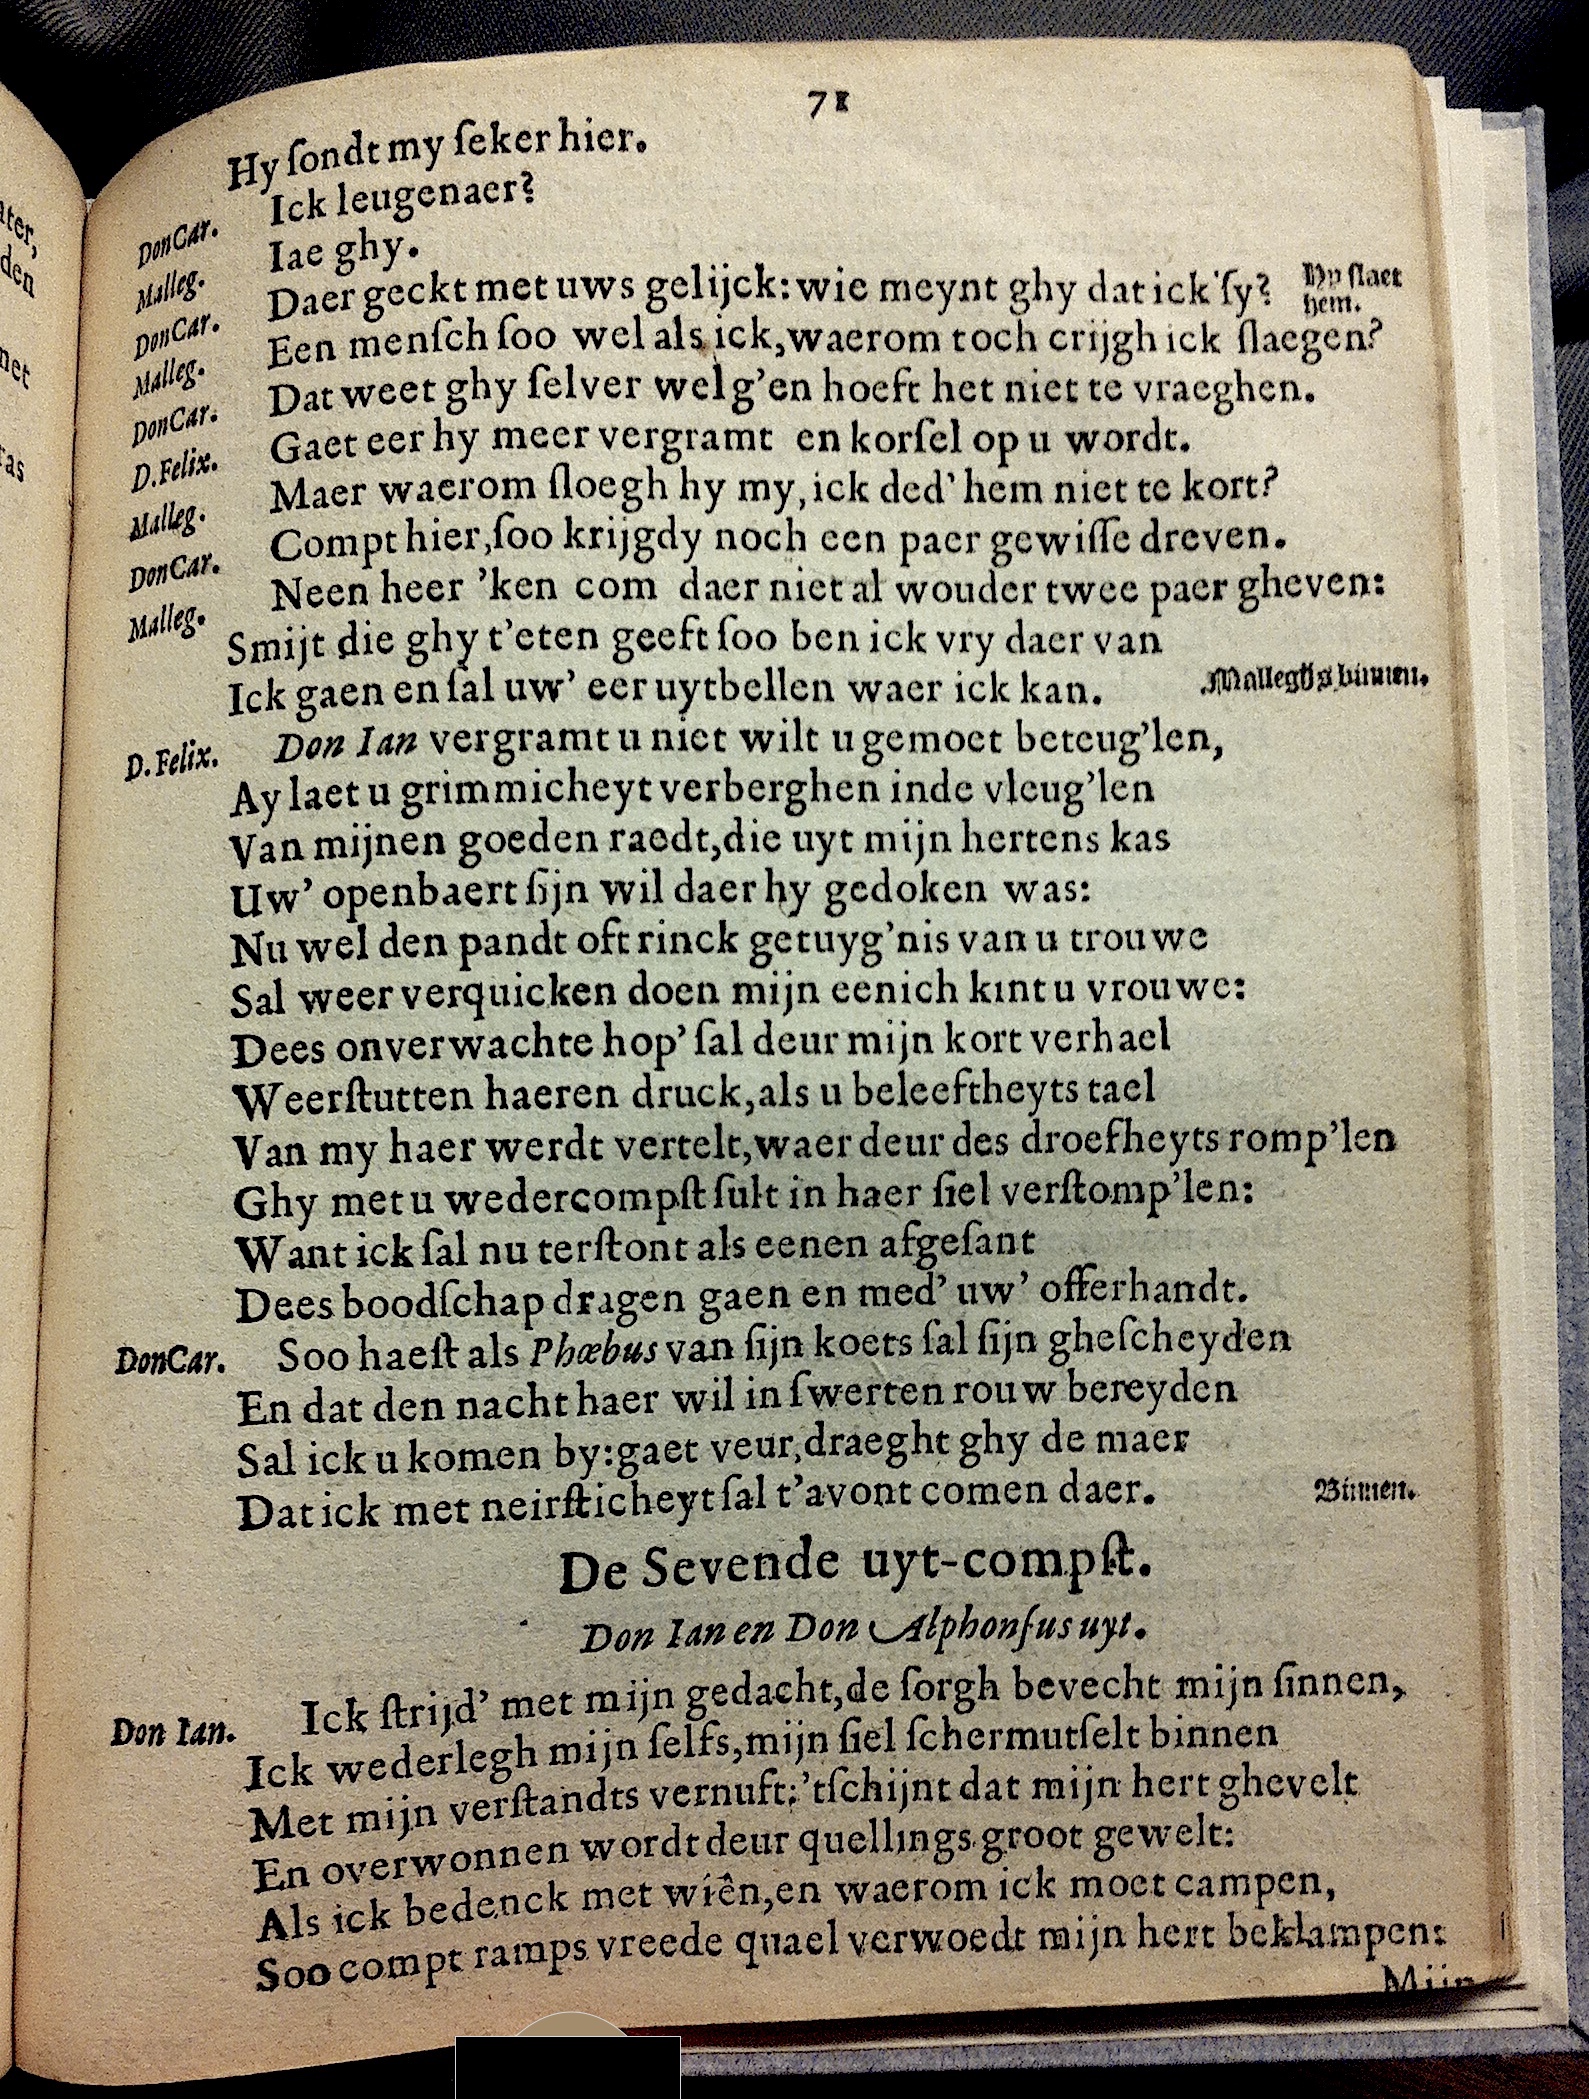 71
Hy ſondt my ſeker hier.
DonCar. Ick leugenaer?
Malleg. Iae ghy.
DonCar. Daer geckt met uws gelijck: wie meynt ghy dat ick ſy? Hy ſlaet hem.
Malleg. Een menſch ſoo wel als ick, waerom toch crijgh ick ſlaegen?
DonCar. Dat weet ghy ſelver wel g'en hoeft het niet te vraeghen.
D.Felix. Gaet eer hy meer vergramt en korſel op u wordt.
Malleg. Maer waerom ſloegh hy my, ick ded' hem niet te kort?
DonCar. Compt hier, ſoo krijgdy noch een paer gewiſſe dreven.
Malleg. Neen heer 'ken com daer niet al wouder twee paer gheven:
Smijt die ghy t'eten geeft ſoo ben ick vry daer van
Ick gaen en ſal uw' eer uytbellen waer ick kan. Mallegijs binnen.
D.Felix. Don Ian vergramt u niet wilt u gemoet beteug'len,
Ay laet u grimmicheyt verberghen inde vleug'len
Van mijnen goeden raedt, die uyt mijn hertens kas
Uw' openbaert ſijn wil daer hy gedoken was:
Nu wel den pandt oft rinck getuyg'nis van u trouwe
Sal weer verquicken doen mijn eenich kint u vrouwe:
Dees onverwachte hop' ſal deur mijn kort verhael
Weerſtutten haeren druck, als u beleeftheyts tael
Van my haer werdt vertelt, waer deur des droefheyts romp'len
Ghy met u wedercompſt ſult in haer ſiel verſtomp'len:
Want ick ſal nu terſtont als eenen afgeſant
Dees boodſchap dragen gaen en med' uw' offerhandt.
DonCar. Soo haeſt als Phœbus van ſijn koets ſal ſijn gheſcheyden
En dat den nacht haer wil in ſwerten rouw bereyden
Sal ick u komen by: gaet veur, draeght ghy de maer
Dat ick met neirſticheyt ſal t'avont comen daer. Binnen.
De Sevende uyt-compſt.
Don Ian en Don Alphonſus uyt.
Don Ian. Ick ſtrijd' met mijn gedacht, de ſorgh bevecht mijn ſinnen,
Ick wederlegh mijn ſelfs, mijn ſiel ſchermutſelt binnen
Met mijn verſtandts vernuft: 'tſchijnt dat mijn hert ghevelt
En overwonnen wordt deur quellings groot gewelt:
Als ick bedenck met wiên, en waerom ick moet campen,
Soo compt ramps vreede quael verwoedt mijn hert beklampen:
Mijn